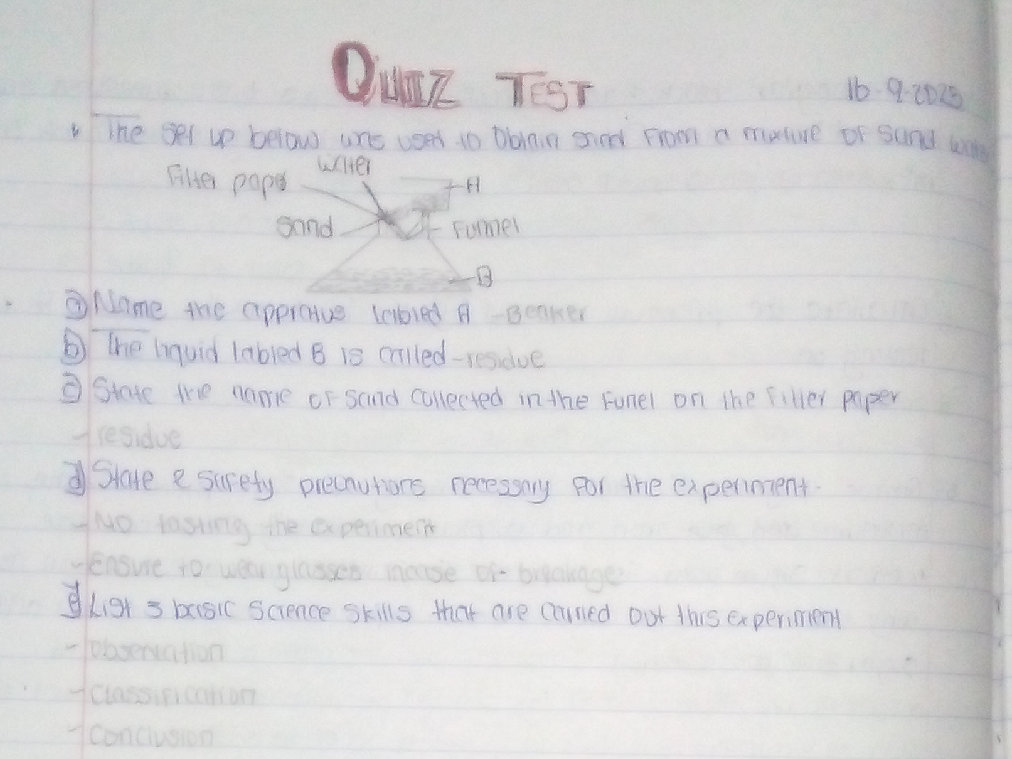 QUIZ TEST
16-9-2025
The set up below was used to Obtain sand From a mixture of Sand water
Water
Filter pape
A
Sand
Funnel
B
a) Name the appratus labled A - Beaker
b) The liquid labled B is called - residue
c) State the name of sand collected in the Funel on the filter paper
- residue
d) State 2 safety precautions necessary for the experiment.
- No tasting the experiment
- Ensure to wear glasses incase of breakage
e) List 3 basic science skills that are carried out this experiment
- Observation
- Classification
- Conclusion